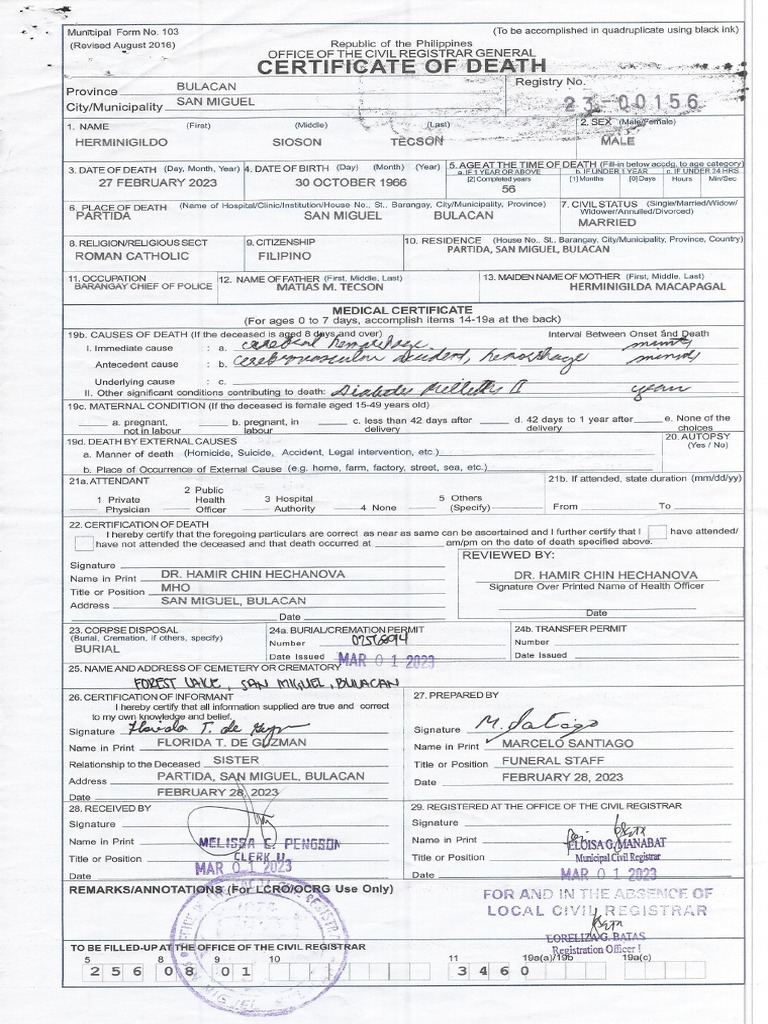 Municipal Form No. 103 (To be accomplished in quadruplicate using black ink)
(Revised August 2016) Republic of the Philippines
OFFICE OF THE CIVIL REGISTRAR GENERAL
CERTIFICATE OF DEATH
Province BULACAN Registry No.
City/Municipality SAN MIGUEL 23-00156
1. NAME (First) (Middle) (Last) 2. SEX (Male/Female)
HERMINIGILDO SIOSON TECSON MALE
3. DATE OF DEATH (Day, Month, Year) 4. DATE OF BIRTH (Day) (Month) (Year) 5. AGE AT THE TIME OF DEATH (Fill-in below accdg. to age category)
a. IF 1 YEAR OR ABOVE b. IF UNDER 1 YEAR c. IF UNDER 24 HRS
[2] Completed years [1] Months [0] Days Hours Min/Sec
27 FEBRUARY 2023 30 OCTOBER 1966 56
6. PLACE OF DEATH (Name of Hospital/Clinic/Institution/House No., St., Barangay, City/Municipality, Province) 7. CIVIL STATUS (Single/Married/Widow/
Widower/Annulled/Divorced)
PARTIDA SAN MIGUEL BULACAN MARRIED
8. RELIGION/RELIGIOUS SECT 9. CITIZENSHIP 10. RESIDENCE (House No., St., Barangay, City/Municipality, Province, Country)
ROMAN CATHOLIC FILIPINO PARTIDA, SAN MIGUEL, BULACAN
11. OCCUPATION 12. NAME OF FATHER (First, Middle, Last) 13. MAIDEN NAME OF MOTHER (First, Middle, Last)
BARANGAY CHIEF OF POLICE MATIAS M. TECSON HERMINIGILDA MACAPAGAL
MEDICAL CERTIFICATE
(For ages 0 to 7 days, accomplish items 14-19a at the back)
19b. CAUSES OF DEATH (If the deceased is aged 8 days and over) Interval Between Onset and Death
I. Immediate cause : a. cerebral hemorrhage
Antecedent cause : b. cerebrovascular accident, hemorrhage
Underlying cause : c.
II. Other significant conditions contributing to death: Diabetes Mellitus II
19c. MATERNAL CONDITION (If the deceased is female aged 15-49 years old)
a. pregnant, not in labour b. pregnant, in labour c. less than 42 days after delivery d. 42 days to 1 year after delivery e. None of the choices
19d. DEATH BY EXTERNAL CAUSES 20. AUTOPSY
(Yes / No)
a. Manner of death (Homicide, Suicide, Accident, Legal intervention, etc.)
b. Place of Occurrence of External Cause (e.g. home, farm, factory, street, sea, etc.)
21a. ATTENDANT 21b. If attended, state duration (mm/dd/yy)
1 Private Physician 2 Public Health Officer 3 Hospital Authority 4 None 5 Others (Specify) From To
22. CERTIFICATION OF DEATH
I hereby certify that the foregoing particulars are correct as near as same can be ascertained and I further certify that I have attended/
have not attended the deceased and that death occurred at am/pm on the date of death specified above.
Signature REVIEWED BY:
Name in Print DR. HAMIR CHIN HECHANOVA DR. HAMIR CHIN HECHANOVA
Title or Position MHO Signature Over Printed Name of Health Officer
Address SAN MIGUEL, BULACAN
Date Date
23. CORPSE DISPOSAL 24a. BURIAL/CREMATION PERMIT 24b. TRANSFER PERMIT
(Burial, Cremation, if others, specify) Number Number
BURIAL Date Issued MAR 01 2023 Date Issued
25. NAME AND ADDRESS OF CEMETERY OR CREMATORY
FOREST LAKE, SAN MIGUEL, BULACAN
26. CERTIFICATION OF INFORMANT 27. PREPARED BY
I hereby certify that all information supplied are true and correct
to my own knowledge and belief.
Signature Florida T. de Guzman Signature M. Santiago
Name in Print FLORIDA T. DE GUZMAN Name in Print MARCELO SANTIAGO
Relationship to the Deceased SISTER Title or Position FUNERAL STAFF
Address PARTIDA, SAN MIGUEL, BULACAN Date FEBRUARY 28, 2023
Date FEBRUARY 28, 2023
28. RECEIVED BY 29. REGISTERED AT THE OFFICE OF THE CIVIL REGISTRAR
Signature Signature
Name in Print MELISSA C. PENGSON Name in Print ELOISA G. MANABAT
Title or Position CLERK II Title or Position Municipal Civil Registrar
Date MAR 01 2023 Date MAR 01 2023
REMARKS/ANNOTATIONS (For LCRO/OCRG Use Only)
FOR AND IN THE ABSENCE OF
LOCAL CIVIL REGISTRAR
LORELIZA G. BATAS
Registration Officer I
TO BE FILLED-UP AT THE OFFICE OF THE CIVIL REGISTRAR
5 8 9 10 11 19a(a)/19b 19a(c)
2 5 6 0 8 0 1 3 4 6 0